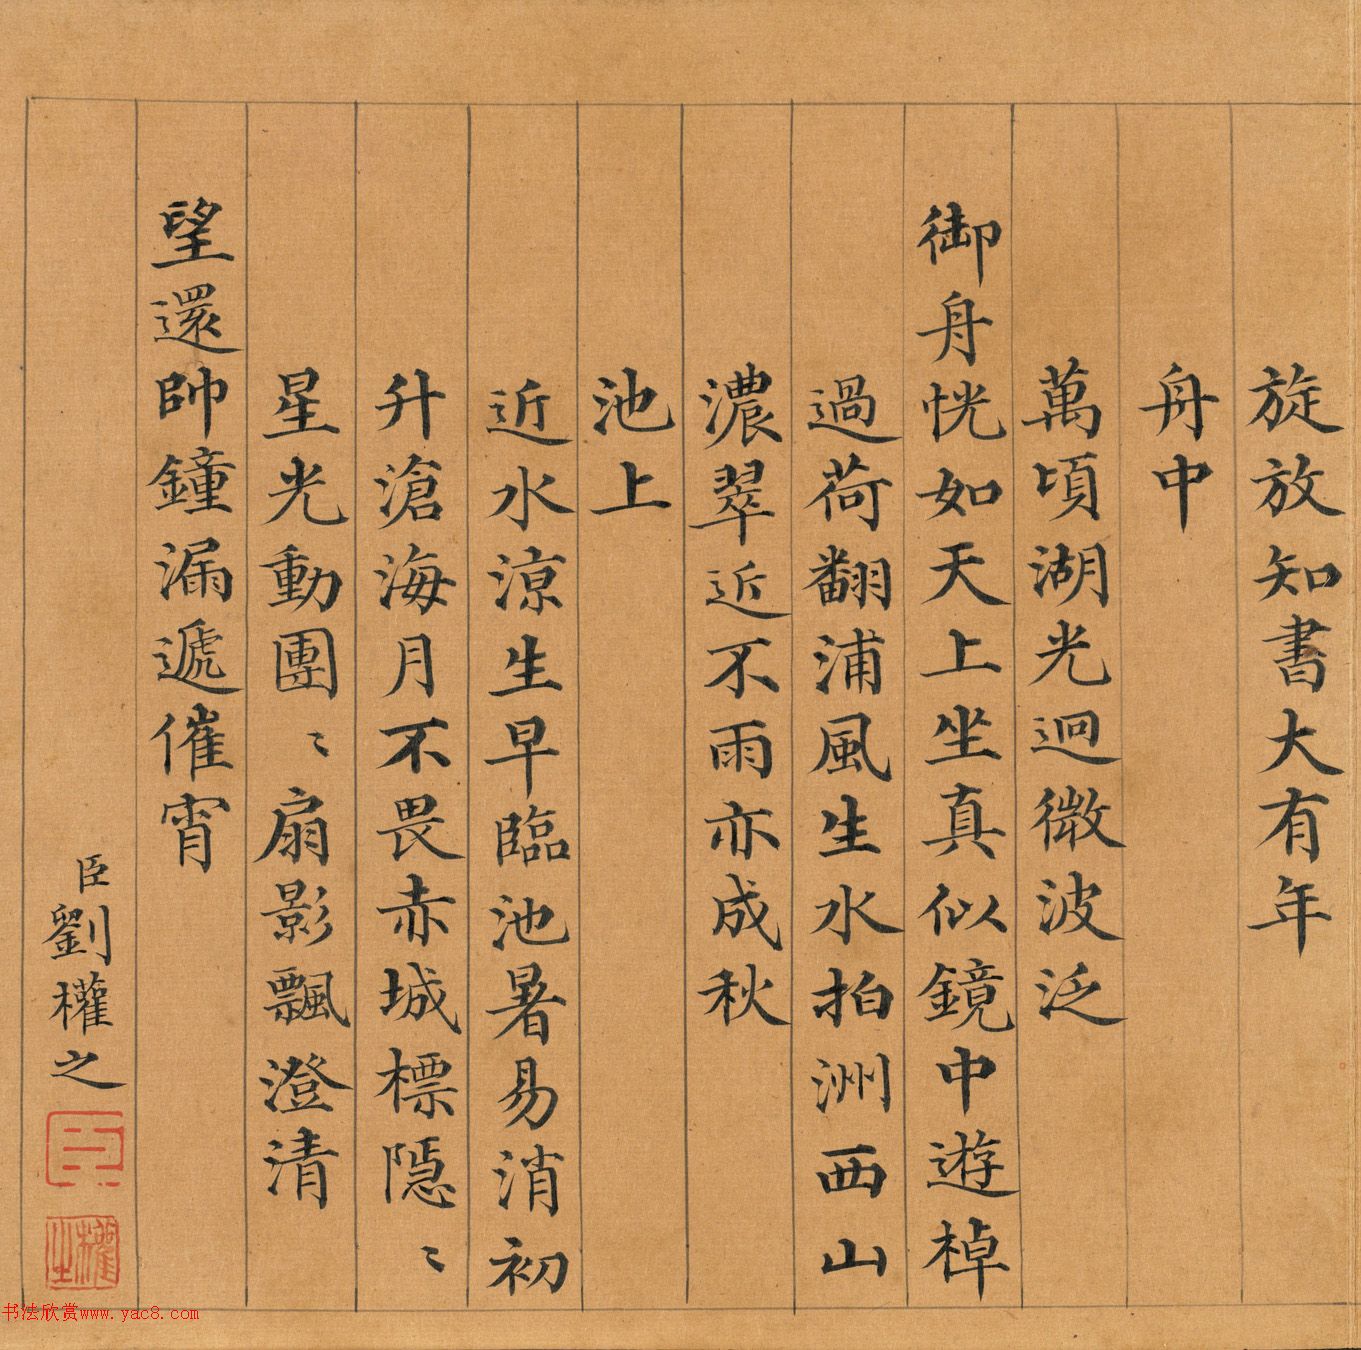 旋放知書大有年
舟中
萬頃湖光迴微波泛
御舟恍如天上坐真似鏡中遊棹
過荷翻浦風生水拍洲西山
濃翠近不雨亦成秋
池上
近水涼生早臨池暑易消初
升滄海月不畏赤城標隱〻
星光動團〻扇影飄澄清
望還帥鐘漏遞催宵
臣劉權之
臣
權之
书法欣赏www.yac8.com